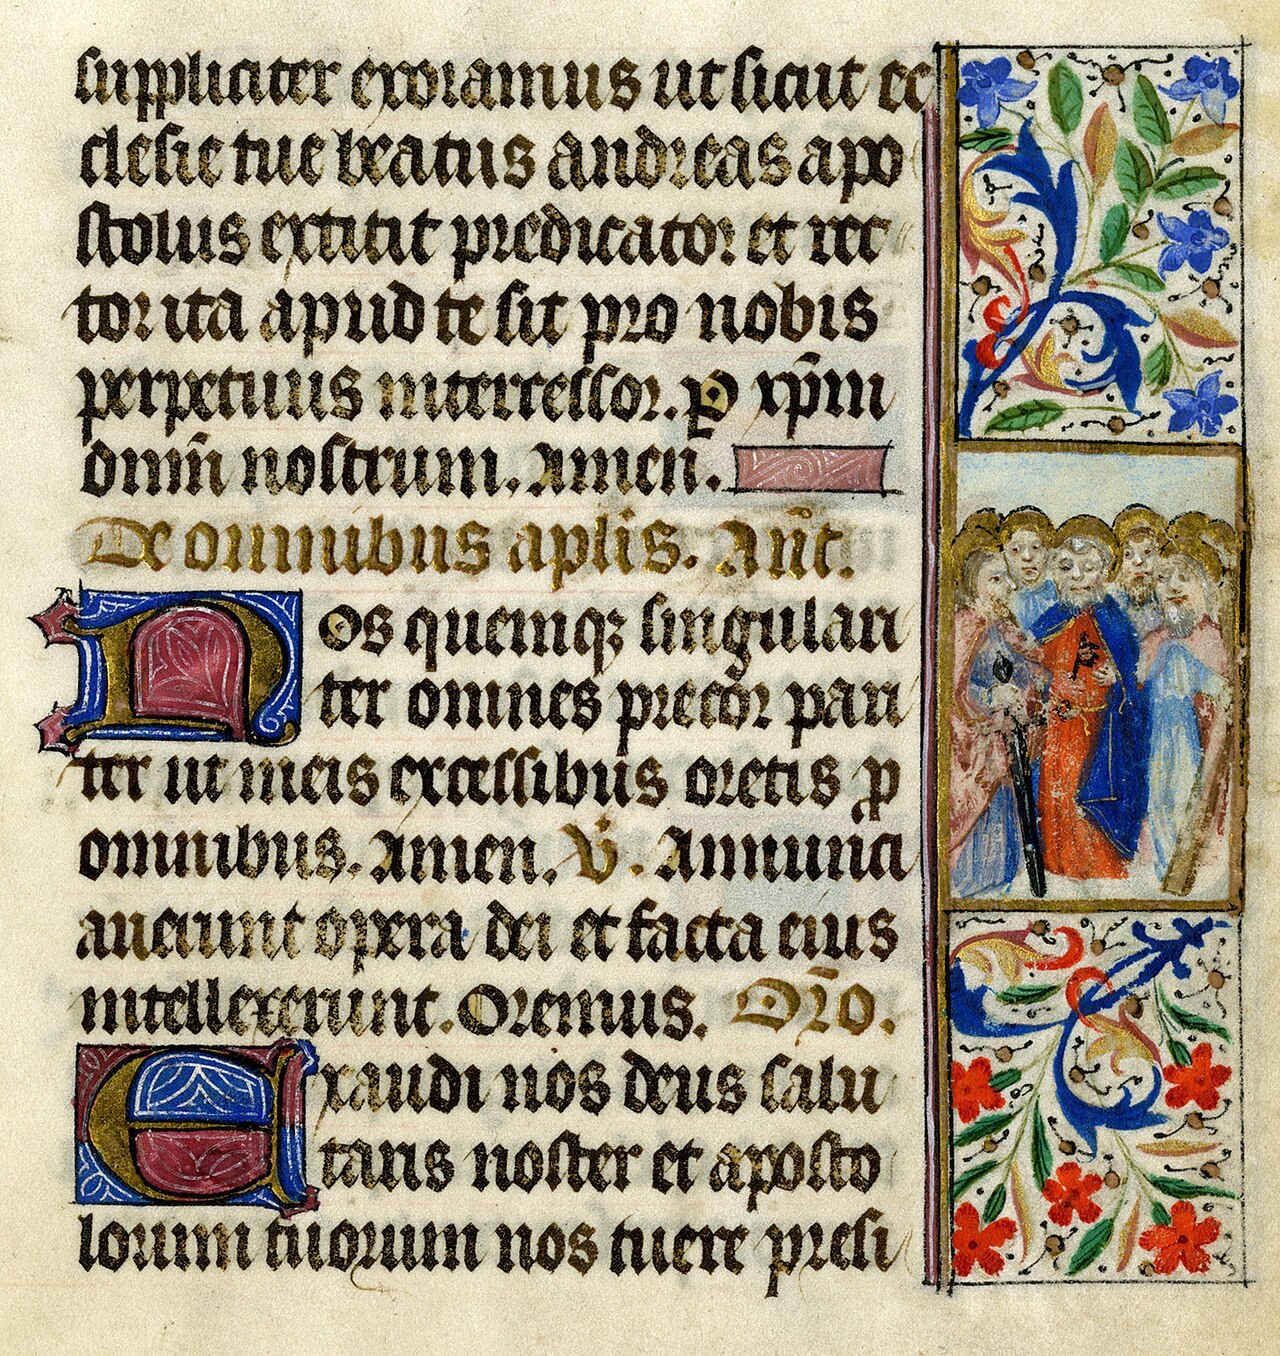 suppliciter exoramus ut sicut ec
clesie tue beatus andreas apo
stolus extitit predicator et rec
tor ita apud te sit pro nobis
perpetuus intercessor. ꝑ xp̄m
dn̄m nostrum. Amen.
De omnibus apl̄is. An̄t.
Nos quemqꝫ singulari
ter omnes precor pari
ter ut meis excessibus oretis ꝓ
omnibus. Amen. V̄. Annunci
auerunt opera dei et facta eius
intellexerunt. Oremus. Or̄o.
Exaudi nos deus salu
taris noster et aposto
lorum tuorum nos tuere presi